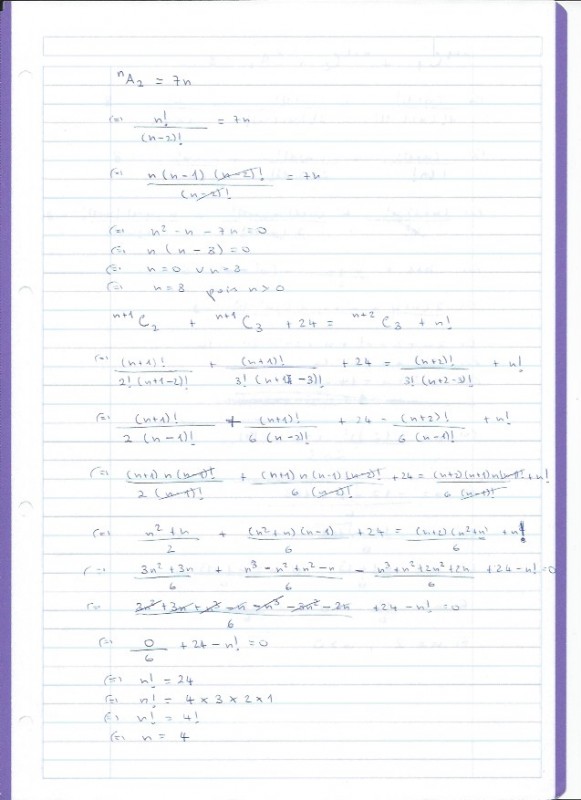 ⁿA₂ = 7n
(=) n! / (n-2)! = 7n
(=) n(n-1)(n-2)! / (n-2)! = 7n
(=) n² - n - 7n = 0
(=) n(n-8) = 0
(=) n=0 ∨ n=8
(=) n=8 pois n>0
ⁿ⁺¹C₂ + ⁿ⁺¹C₃ + 24 = ⁿ⁺²C₃ + n!
(=) (n+1)! / 2!(n+1-2)! + (n+1)! / 3!(n+1-3)! + 24 = (n+2)! / 3!(n+2-3)! + n!
(=) (n+1)! / 2(n-1)! + (n+1)! / 6(n-2)! + 24 - (n+2)! / 6(n-1)! + n!
(=) (n+1)n(n-1)! / 2(n-1)! + (n+1)n(n-1)(n-2)! / 6(n-2)! + 24 = (n+2)(n+1)n(n-1)! / 6(n-1)! + n!
(=) n²+n / 2 + (n²+n)(n-1) / 6 + 24 = (n+2)(n²+n) / 6 + n!
(=) 3n²+3n / 6 + n³-n²+n²-n / 6 - n³+n²+2n²+2n / 6 + 24 - n! = 0
(=) 3n²+3n+n³-n-n³-3n²-2n / 6 + 24 - n! = 0
(=) 0 / 6 + 24 - n! = 0
(=) n! = 24
(=) n! = 4×3×2×1
(=) n! = 4!
(=) n = 4